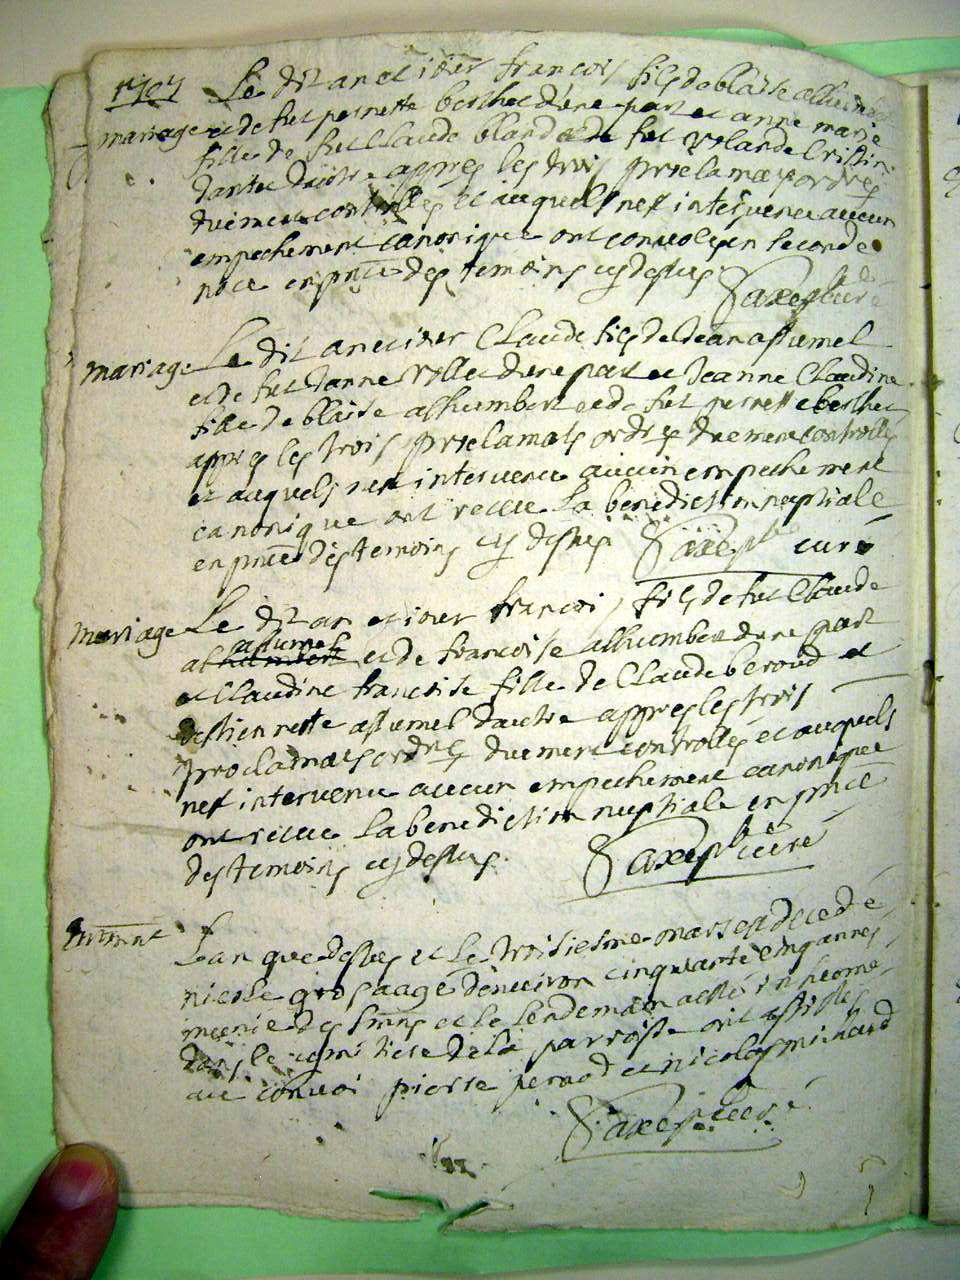 1707
Le dit an et iour francois fils de blaise alhumbert
mariage et de fut pernette berthet d'une part et anne marie
fille de fut Claude bland et de fut yolande Cristin
d'autre apprès les trois proclamaõns ordrēs
duement controllés et auquels n'est intervenu aucun
empechement canonique ont convolé en seconde
noce en pñce des temoins cy dessus
Saxe plbr curé
mariage Le dit an et iour Claude fils de Jean assumel
et de fut Janne Vollet d'une part et Jeanne Claudine
fille de blaise alhumbert et de fut pernette berthet
apprès les trois proclamaõns ordrēs duement controllés
et auquels n'est intervenu aucun empechement
canonique ont receu la benediction nuptiale
en pñce des temoins cy dessus Saxe plbr curé
mariage Le dit an et iour francois fils de fut Claude
assumel
et de francoise alhumbert d'une part
et Claudine francoise fille de Claude beroud et
d'estiennette assumel d'autre apprès les trois
proclamaõns ordrēs duement controllés et auquels
n'est intervenu aucun empechement canonique
ont receu la benediction nuptiale en pñce
des temoins cy dessus. Saxe plbr curé
L'an que dessus et le troisiesme mars est decedé
nicole gros aagé d'environ cinquante cinq annes
munie des smns et le lendemain a esté inhumé
dans le cymitiere de la parroisse ont assistés
au convoi pierre pernod et nicolas minard
Saxe plbr curé